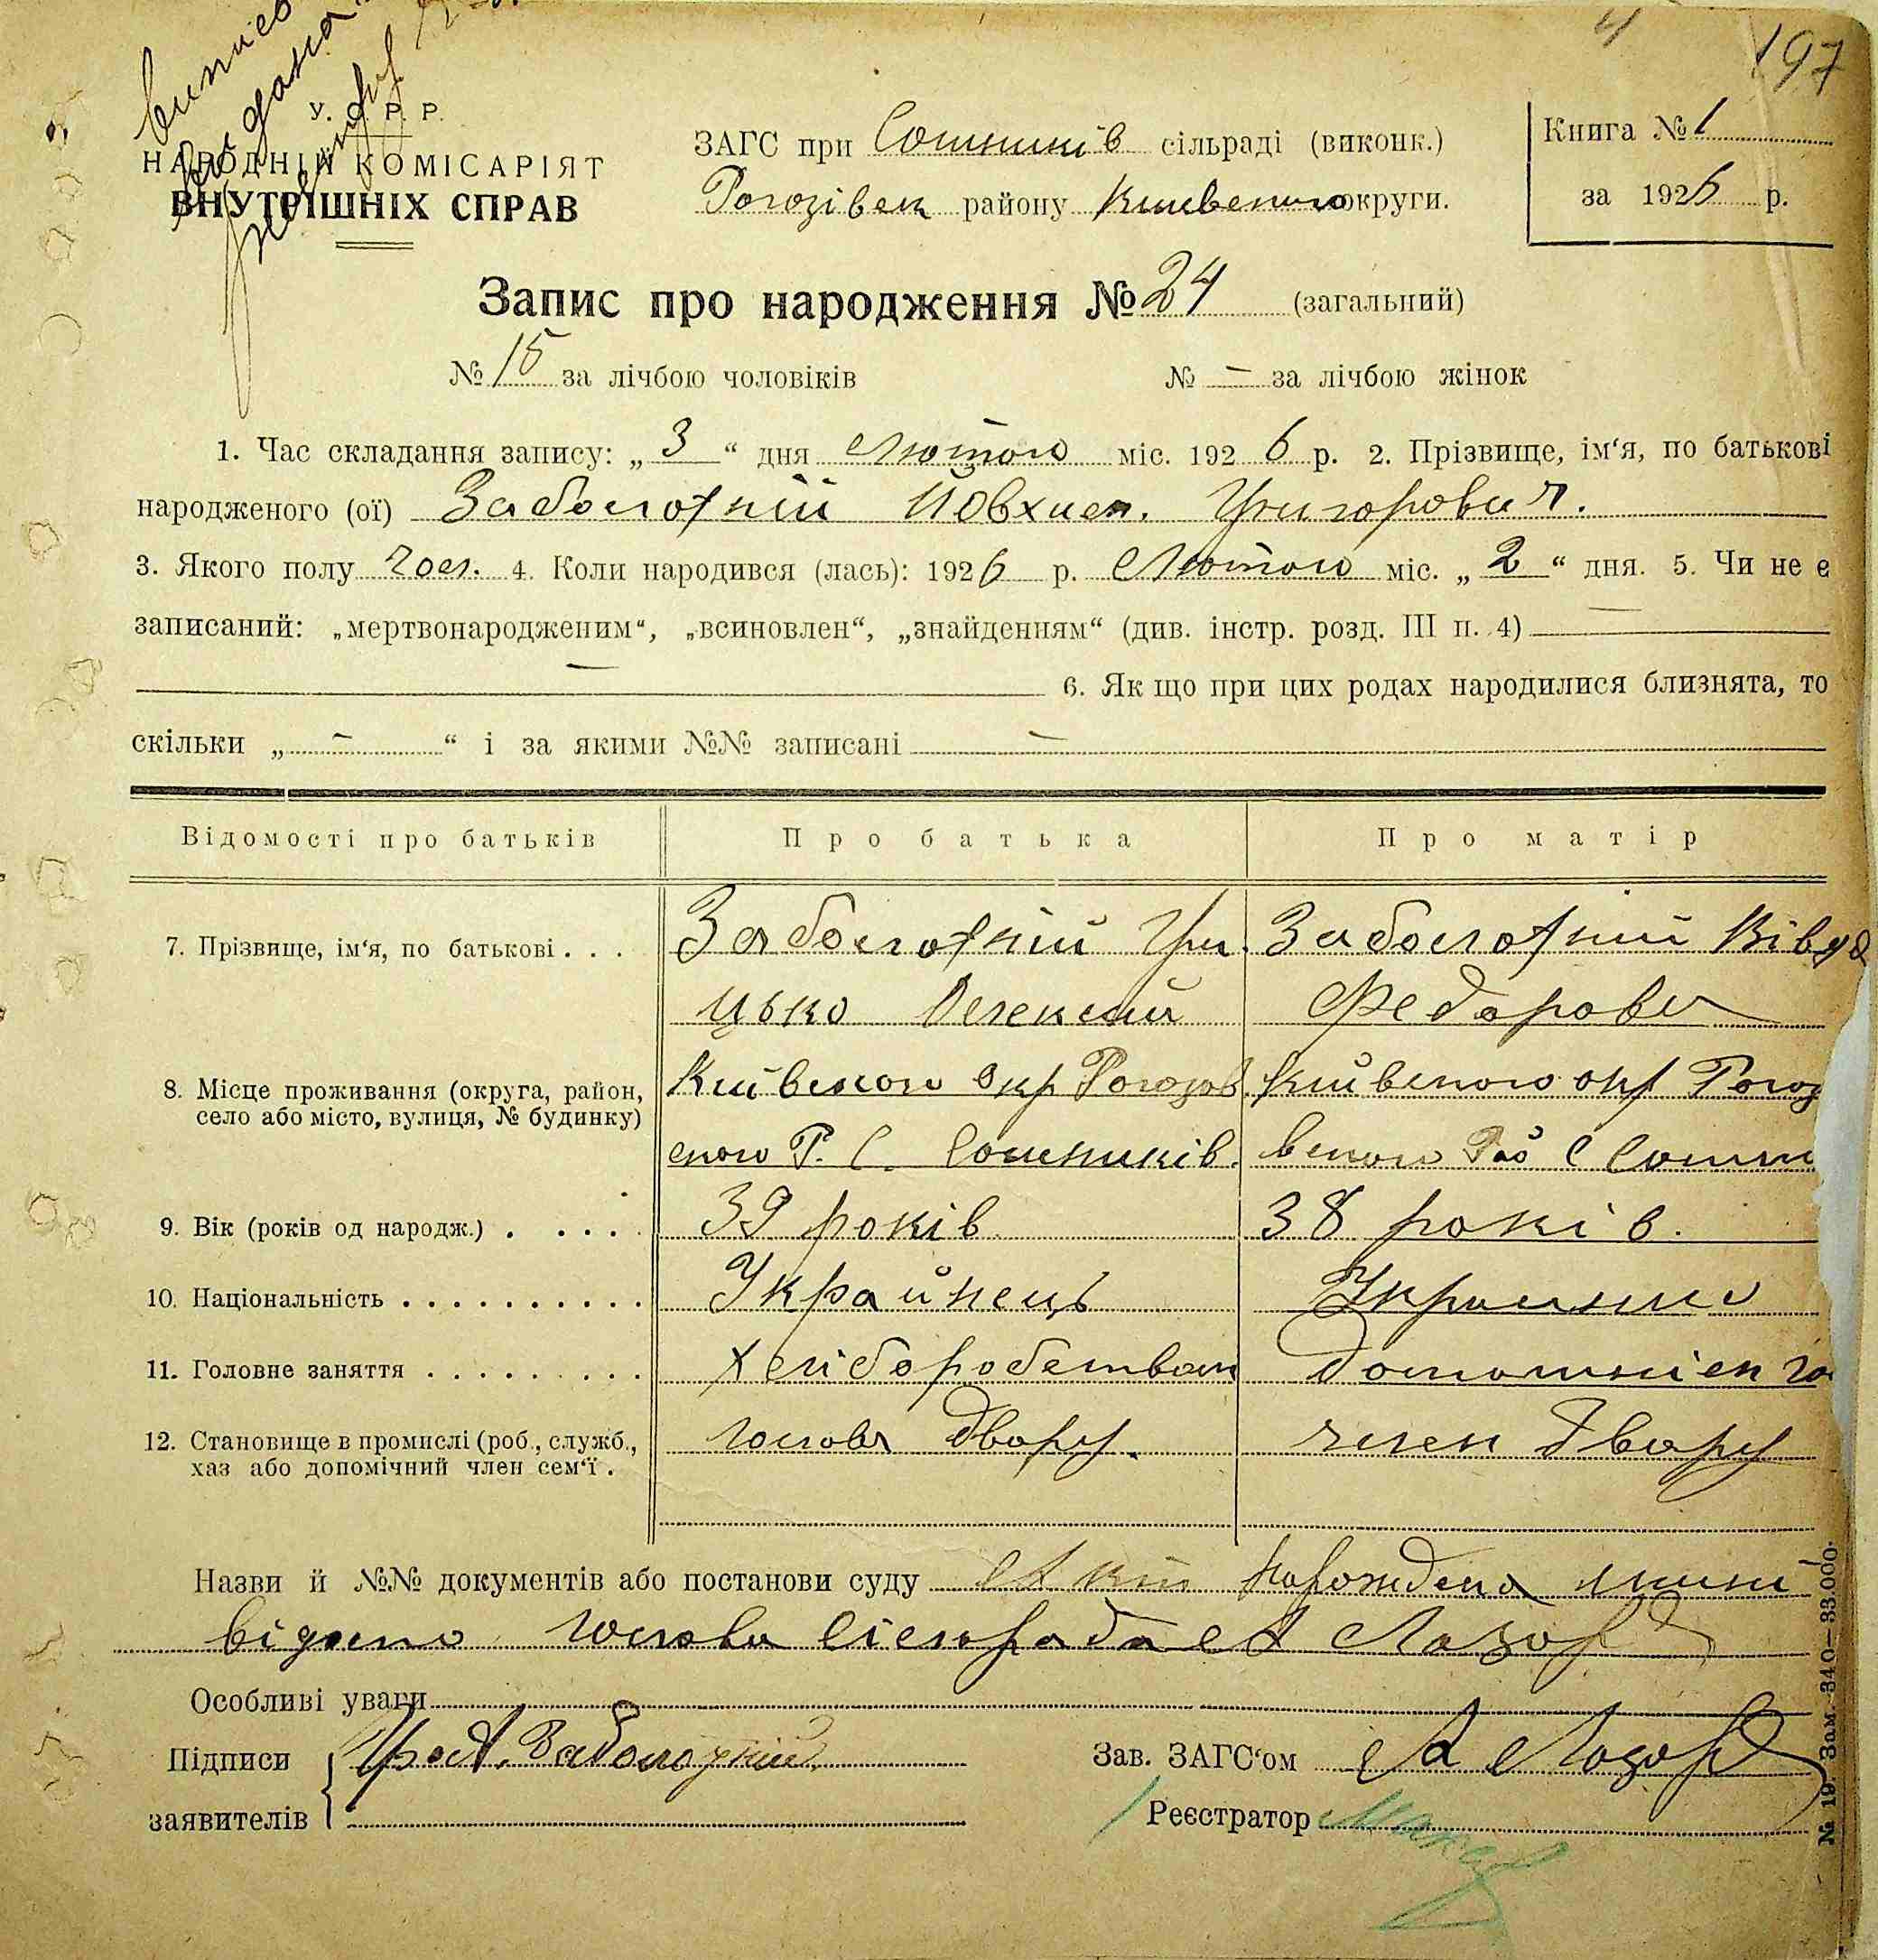 4
197
У. С. Р. Р.
НАРОДНІЙ КОМІСАРІЯТ
ВНУТРІШНІХ СПРАВ
ЗАГС при Сошників сільраді (виконк.)
Рогозівськ району Київського округи.
Книга № 1
за 1926 р.
Запис про народження № 24 (загальний)
№ 15 за лічбою чоловіків № — за лічбою жінок
1. Час складання запису: „ 3 “ дня Лютого міс. 192 6 р. 2. Прізвище, ім‘я, по батькові
народженого (ої) Заболотній Григорович.
3. Якого полу чол. 4. Коли народився (лась): 1926 р. Лютого міс. „ 2 “ дня. 5. Чи не є
записаний: „мертвонародженим“, „всиновлен“, „знайденням“ (див. інстр. розд. III п. 4) —
— 6. Як що при цих родах народилися близнята, то
скільки „ — “ і за якими №№ записані —
Відомості про батьків Про батька Про матір
7. Прізвище, ім‘я, по батькові . . . Заболотній Гри. Заболотній
цько Олексій Федорова
8. Місце проживання (округа, район, Київського Окр Рогозів. Київського окр Рогоз
село або місто, вулиця, № будинку) ського Р. С. Сошників. вського С Сошн
9. Вік (років од народж.) . . . . . 39 років 38 років.
10. Національність . . . . . . . . . . . Українець
11. Головне заняття . . . . . . . . . Хліборобством
12. Становище в промислі (роб., служб., голова двору. член двору
хаз або допомічний член сем‘ї .
Назви й №№ документів або постанови суду народжена
відомо голова сільради А Лазор
Особливі уваги
Підписи Заболотній
заявителів
Зав. ЗАГС‘ом А Лазор
Реєстратор
№ 19. Зам. 340—33.000.